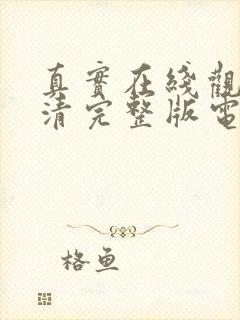 真實在綫觀
清完整版電
格魚